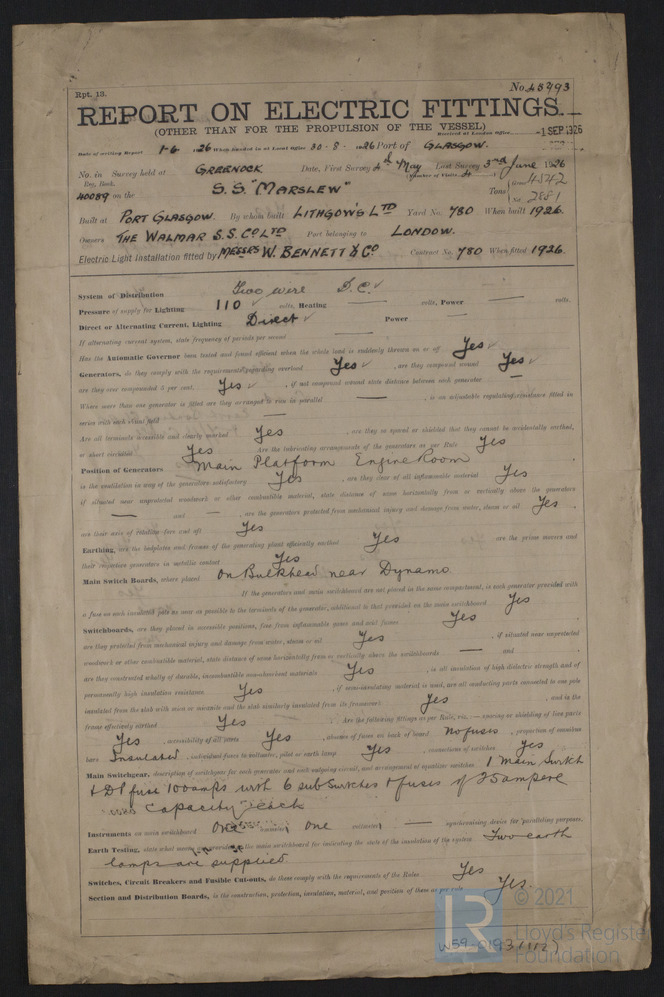 Rpt. 13.
No. 45793
REPORT ON ELECTRIC FITTINGS.
(OTHER THAN FOR THE PROPULSION OF THE VESSEL)
Received at London Office -1 SEP 1926
Date of writing Report 1-6 1926 When handed in at Local Office 30-8-1926 Port of GLASGOW.
No. in Survey held at GREENOCK Date, First Survey May Last Survey 3rd June 1926
Reg. Book. (Number of Visits
40089 on the S.S. "MARSLEW" Tons Gross 4542 Net 2881
Built at PORT GLASGOW. By whom built LITHGOWS LTD Yard No. 780 When built 1926.
Owners THE WALMAR S.S. CO LTD Port belonging to LONDON.
Electric Light Installation fitted by MESSRS W. BENNETT & CO Contract No. 780 When fitted 1926.
System of Distribution Two wire D.C. ✓
Pressure of supply for Lighting 110 ✓ volts, Heating — volts, Power — volts.
Direct or Alternating Current, Lighting Direct ✓ Power —
If alternating current system, state frequency of periods per second —
Has the Automatic Governor been tested and found efficient when the whole load is suddenly thrown on or off Yes ✓
Generators, do they comply with the requirements regarding overload Yes ✓, are they compound wound Yes ✓
are they over compounded 5 per cent. Yes ✓, if not compound wound state distance between each generator —
Where more than one generator is fitted are they arranged to run in parallel —, is an adjustable regulating resistance fitted in
series with each shunt field —
Are all terminals accessible and clearly marked Yes, are they so spaced or shielded that they cannot be accidentally earthed,
or short circuited Yes Are the lubricating arrangements of the generators as per Rule Yes
Position of Generators Main Platform Engine Room
is the ventilation in way of the generators satisfactory Yes, are they clear of all inflammable material Yes
if situated near unprotected woodwork or other combustible material, state distance of same horizontally from or vertically above the generators
— and —, are the generators protected from mechanical injury and damage from water, steam or oil Yes,
are their axes of rotation fore and aft Yes
Earthing, are the bedplates and frames of the generating plant efficiently earthed Yes are the prime movers and
their respective generators in metallic contact Yes
Main Switch Boards, where placed On Bulkhead near Dynamo
If the generators and main switchboard are not placed in the same compartment, is each generator provided with
a fuse on each insulated pole as near as possible to the terminals of the generator, additional to that provided on the main switchboard Yes
Switchboards, are they placed in accessible positions, free from inflammable gases and acid fumes Yes
are they protected from mechanical injury and damage from water, steam or oil Yes, if situated near unprotected
woodwork or other combustible material, state distance of same horizontally from or vertically above the switchboards — and
are they constructed wholly of durable, incombustible non-absorbent materials Yes, is all insulation of high dielectric strength and of
permanently high insulation resistance Yes, if semi-insulating material is used, are all conducting parts connected to one pole
insulated from the slab with mica or micanite and the slab similarly insulated from its framework Yes, and is the
frame effectively earthed Yes. Are the following fittings as per Rule, viz.:— spacing or shielding of live parts
Yes, accessibility of all parts Yes, absence of fuses on back of board No fuses, proportion of omnibus
bars Insulated, individual fuses to voltmeter, pilot or earth lamp Yes, connections of switches Yes
Main Switchgear, description of switchgear for each generator and each outgoing circuit, and arrangement of equaliser switches. 1 Main Switch
& DP fuse 100 amps with 6 sub switches & fuses of 25 ampere
capacity each
Instruments on main switchboard One ammeters One voltmeters — synchronising device for paralleling purposes.
Earth Testing, state what means are provided on the main switchboard for indicating the state of the insulation of the system Two earth
lamps are supplied
Switches, Circuit Breakers and Fusible Cut-outs, do these comply with the requirements of the Rules Yes
Section and Distribution Boards, is the construction, protection, insulation, material, and position of these as per rule Yes.
© 2021
Lloyd's Register
Foundation
LR
W59-0193 (1/2)